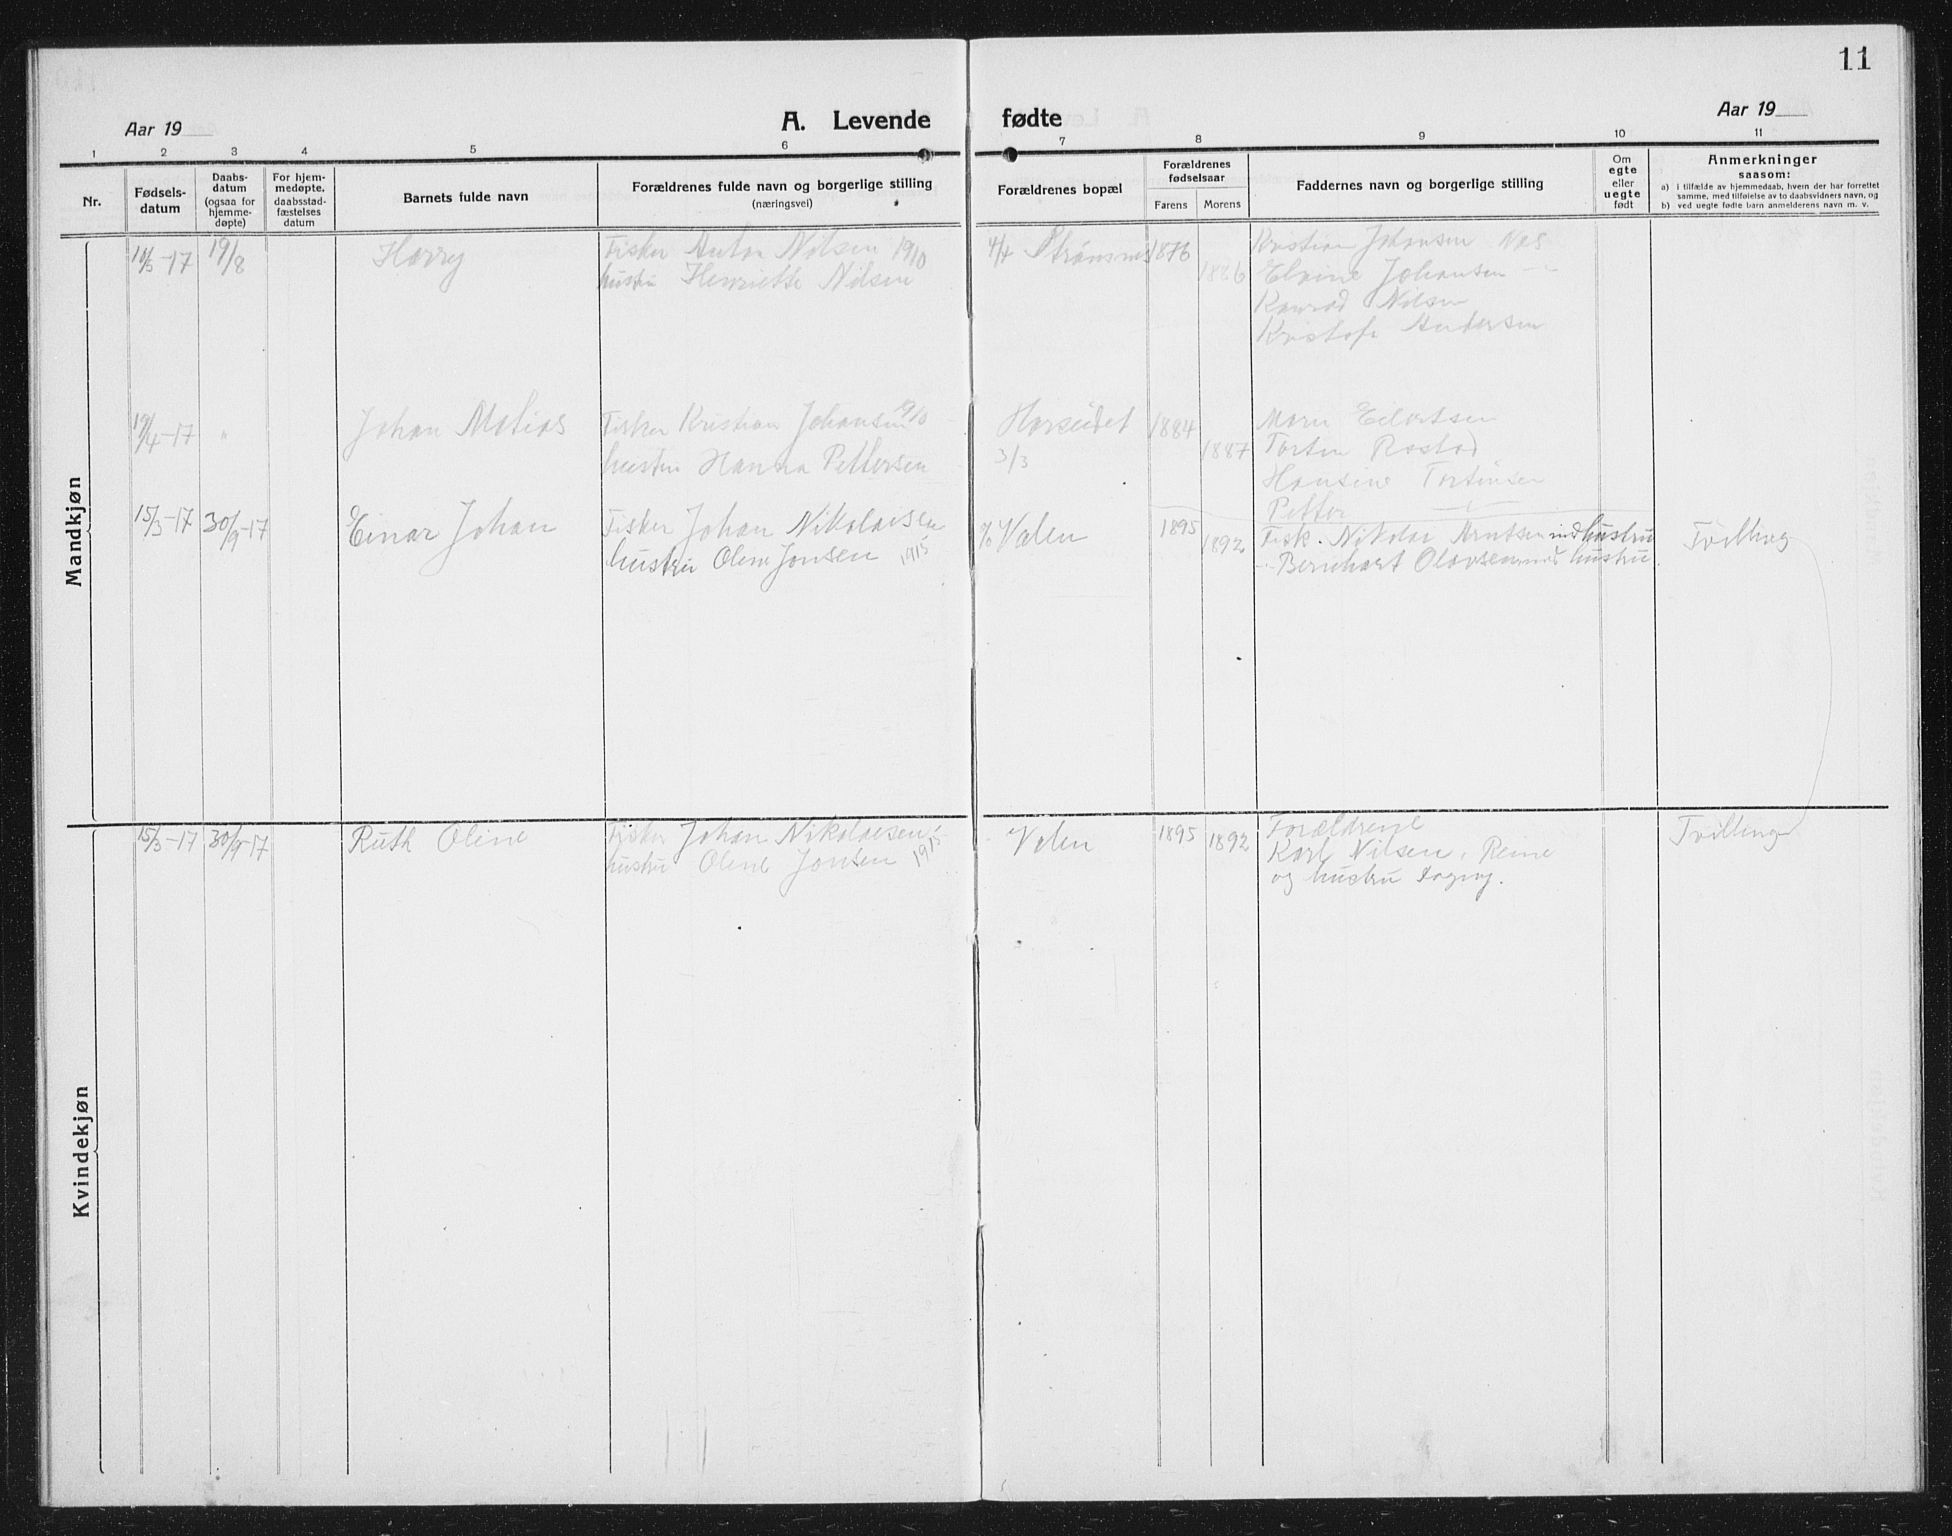 11
Aar 19
A. Levende
fødte
Aar 19
1 2 3 4 5 6 7 8 9 10 11
Nr.
Fødsels-
datum
Daabs-
datum
(ogsaa for
hjemme-
døpte)
For hjem-
medøpte,
daabsstad-
fæstelses
datum
Barnets fulde navn
Forældrenes fulde navn og borgerlige stilling
(næringsvei)
Forældrenes bopæl
Forældrenes
fødselsaar
Farens Morens
Faddernes navn og borgerlige stilling
Om
egte
eller
uegte
født
Anmerkninger
saasom:
a) i tilfælde av hjemmedaab, hvem der har forrettet
samme, med tilføielse av to daabsvidners navn, og
b) ved uegte fødte barn anmelderens navn m. v.
Mandkjøn
-17 19/8 Harry Fisker Anton Nilsen 1910 4/4 1876 Kristian Johansen
hustru Henriette Nilsen 1886 Johansen
Konrad Nilsen
Andersen
19/4-17 " Johan Matias Fisker Kristian Johansen 1910 1884
hustru Hanna Pettersen 3/3 1887 Rostad
Hansine
Petter
15/3-17 30/9-17 Einar Johan Fisker Johan Nikolaisen Valen 1895 Fisk. Nikolai Arntsen hustru Tvilling
hustru Oline Jonsen 1915 1892 Bernhart Olavsen hustru
Kvindekjøn
15/3-17 30/9-17 Ruth Oline Fisker Johan Nikolaisen Valen 1895 1892 Forældrene Tvilling
hustru Oline Jonsen 1915 Karl Nilsen, Reine
og hustru Dagny.